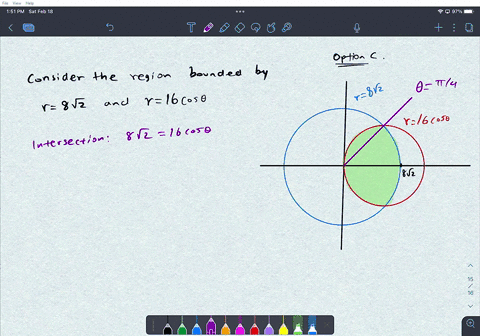 1:51 PM Sat Feb 18
97%
Option C.
Consider the region bounded by
r=8√2 and r=16cosθ
Intersection: 8√2 = 16cosθ
θ=π/4
r=8√2
r=16cosθ
8√2
15
16